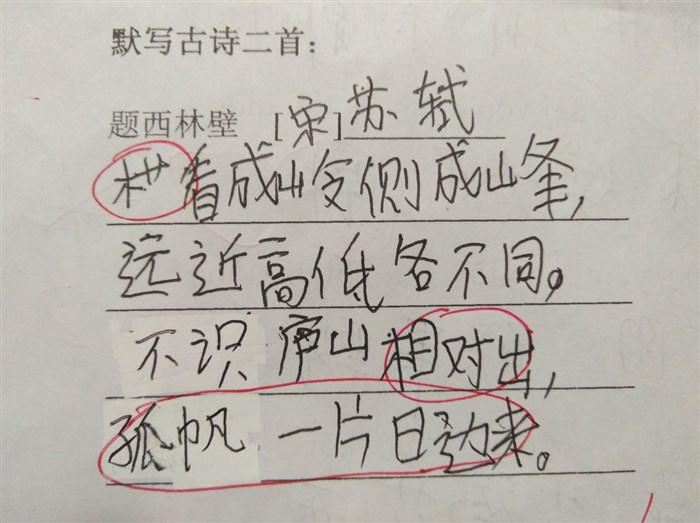 默写古诗二首：
题西林壁 [宋]苏轼
看成岭侧成山峰,
远近高低各不同。
不识庐山相对出,
孤帆一片日边来。